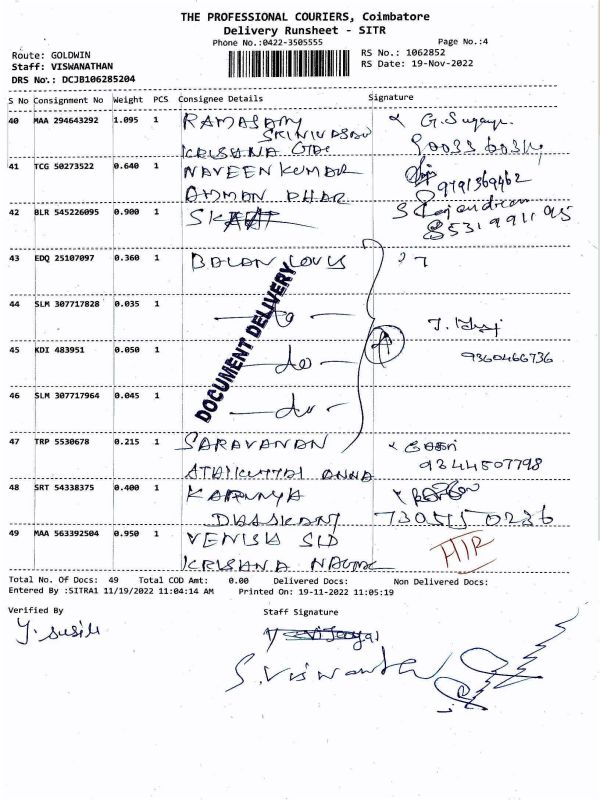 THE PROFESSIONAL COURIERS, Coimbatore
Delivery Runsheet - SITR
Phone No.:0422-3505555
Page No.:4
Route: GOLDWIN
RS No.: 1062852
Staff: VISWANATHAN
RS Date: 19-Nov-2022
DRS No.: DCJB106285204
S No Consignment No Weight PCS Consignee Details Signature
40 MAA 294643292 1.095 1 RAMASAMY
SRINIVASAN
KRISHNA
41 TCG 50273522 0.640 1 NAVEEN KUMAR
9791369462
42 BLR 545226095 0.900 1
S Rajendiran
43 EDQ 25107097 0.360 1 BALAN LOUIS
44 SLM 307717828 0.035 1 do
45 KDI 483951 0.050 1 do
9360466736
46 SLM 307717964 0.045 1 do
DOCUMENT DELIVERY
47 TRP 5530678 0.215 1 SARAVANAN
ANNA 9344507798
48 SRT 54338375 0.400 1 KARUNYA
BHASKAR 7305150236
49 MAA 563392504 0.950 1
KRISHNA
Total No. Of Docs: 49 Total COD Amt: 0.00 Delivered Docs: Non Delivered Docs:
Entered By :SITRA1 11/19/2022 11:04:14 AM Printed On: 19-11-2022 11:05:19
Verified By
Staff Signature
Y. Susili
S. Viswanathan